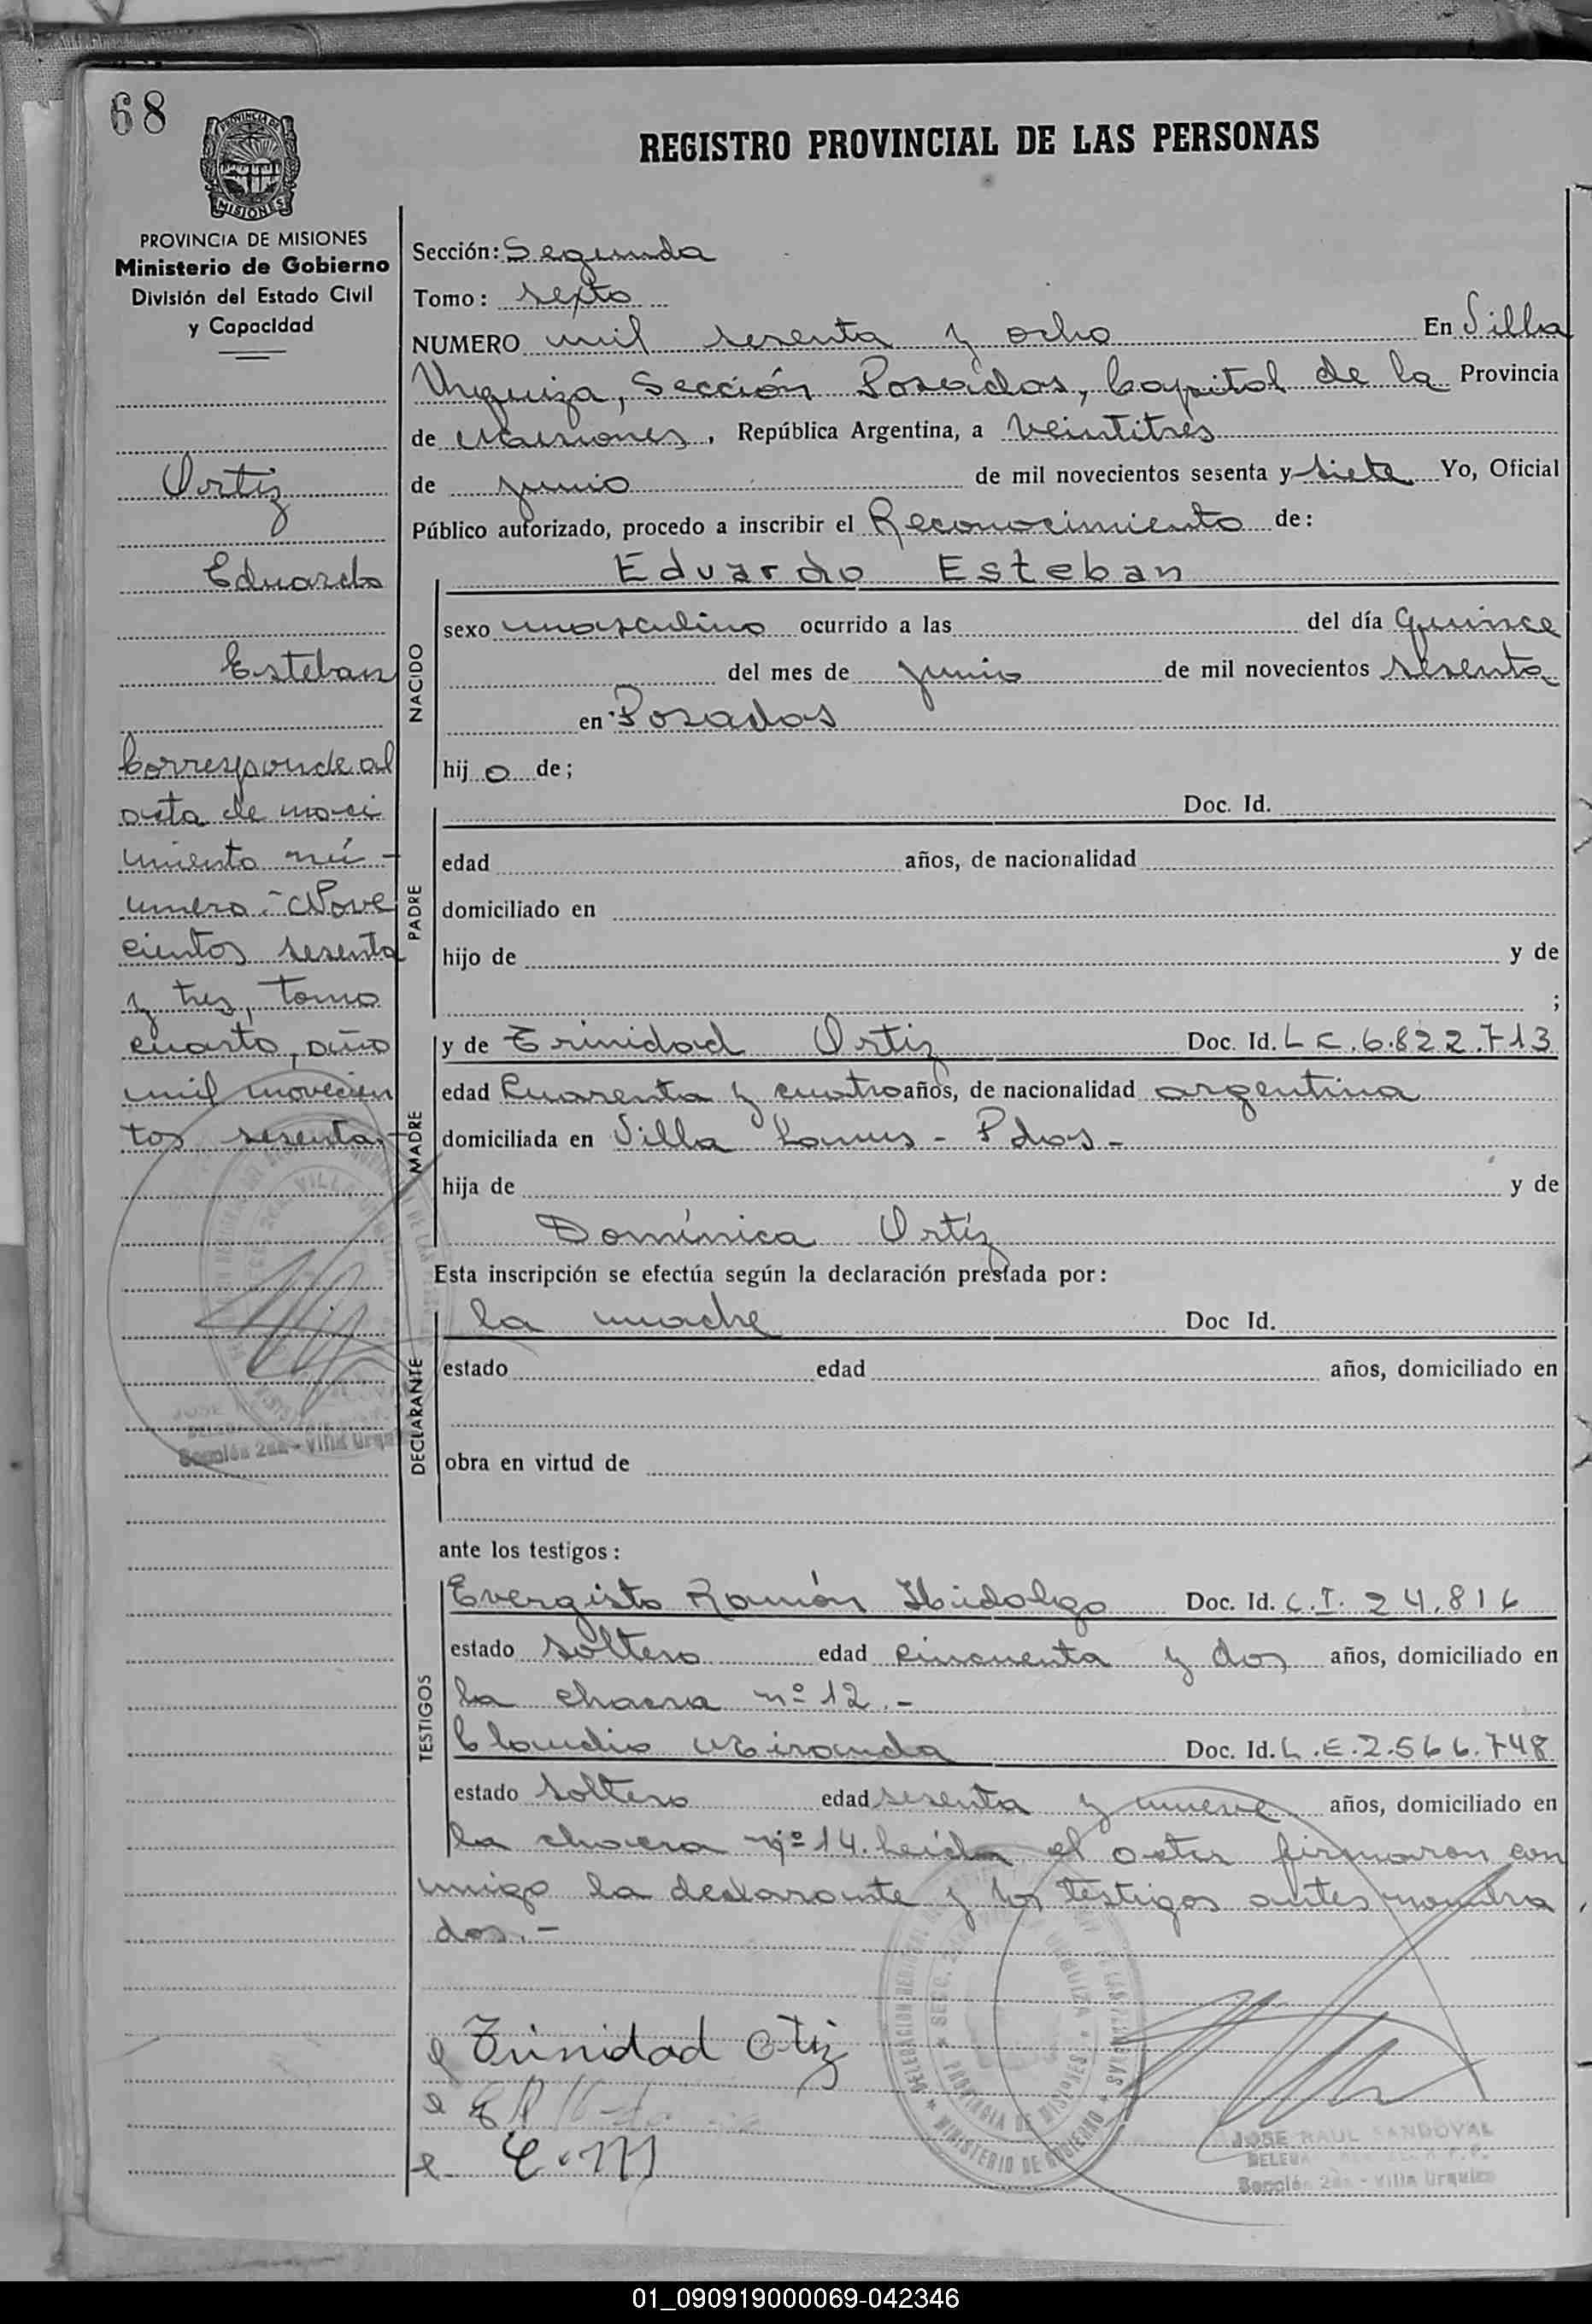 68
PROVINCIA DE
MISIONES
REGISTRO PROVINCIAL DE LAS PERSONAS
PROVINCIA DE MISIONES
Ministerio de Gobierno
División del Estado Civil
y Capacidad
Ortiz
Eduardo
Esteban
Corresponde al
acta de naci
miento nú-
mero:- Nove
cientos sesenta
y tres, tomo
cuarto, año
mil novecien
tos sesenta.-
Sección 2da - Villa Urqu
Sección: Segunda
Tomo: sexto
NUMERO mil sesenta y ocho En Villa
Urquiza, Sección Posadas, Capital de la Provincia
de Misiones, República Argentina, a veintitres
de junio de mil novecientos sesenta y siete Yo, Oficial
Público autorizado, procedo a inscribir el Reconocimiento de:
Eduardo Esteban
NACIDO
sexo masculino ocurrido a las del día Quince
del mes de junio de mil novecientos sesenta
en Posadas
hijo de;
PADRE
Doc. Id.
edad años, de nacionalidad
domiciliado en
hijo de y de
;
MADRE
y de Trinidad Ortiz Doc. Id. L C. 6.822.713
edad Cuarenta y cuatro años, de nacionalidad argentina
domiciliada en Villa Lanus - Pdas -
hija de y de
Domínica Ortíz
Esta inscripción se efectúa según la declaración prestada por:
DECLARANTE
la madre Doc Id.
estado edad años, domiciliado en
obra en virtud de
ante los testigos:
TESTIGOS
Evergisto Ramón Hidalgo Doc. Id. C.I. 24.816
estado soltero edad cincuenta y dos años, domiciliado en
la chacra nº 12.-
Claudio Miranda Doc. Id. L.E. 2.566.748
estado soltero edad sesenta y nueve años, domiciliado en
la chacra nº 14. Leída el acta firmaron con
migo la declarante y los testigos antes nombra
dos.-
Trinidad Otiz
C.M
DELEGACION
SECC. 2da VILLA URQUIZA
PROVINCIA DE MISIONES
MINISTERIO DE GOBIERNO
JOSE RAUL SANDOVAL
Sección 2da - Villa Urquiza
01_090919000069-042346